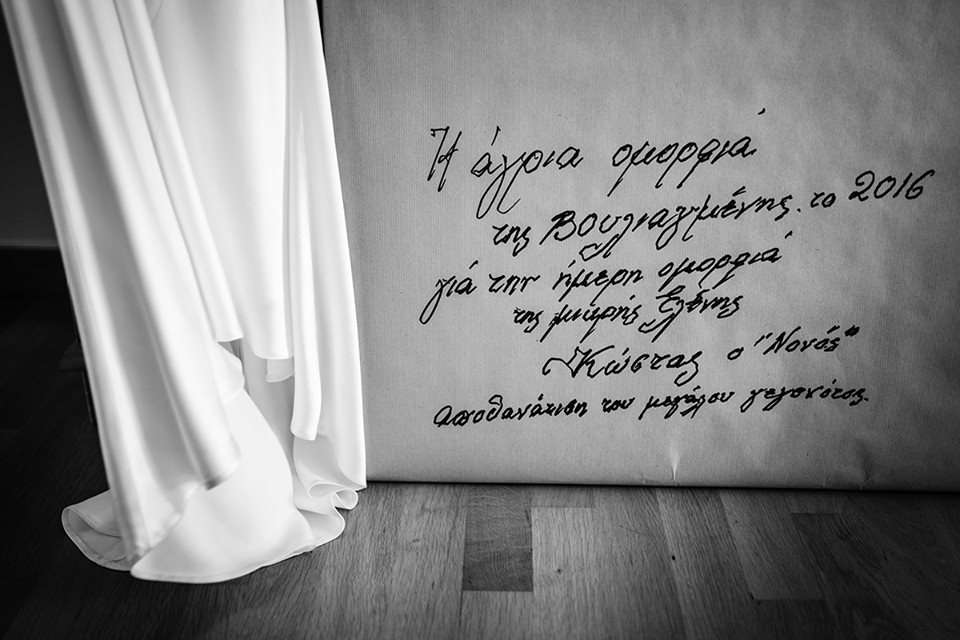 Η άγρια ομορφιά
της Βουλιαγμένης. το 2016
γιά την ήμερη ομορφιά
της μικρής Ελένης
Κώστας ο "Νονός"
Αποθανάτιση του μεγάλου γεγονότος.